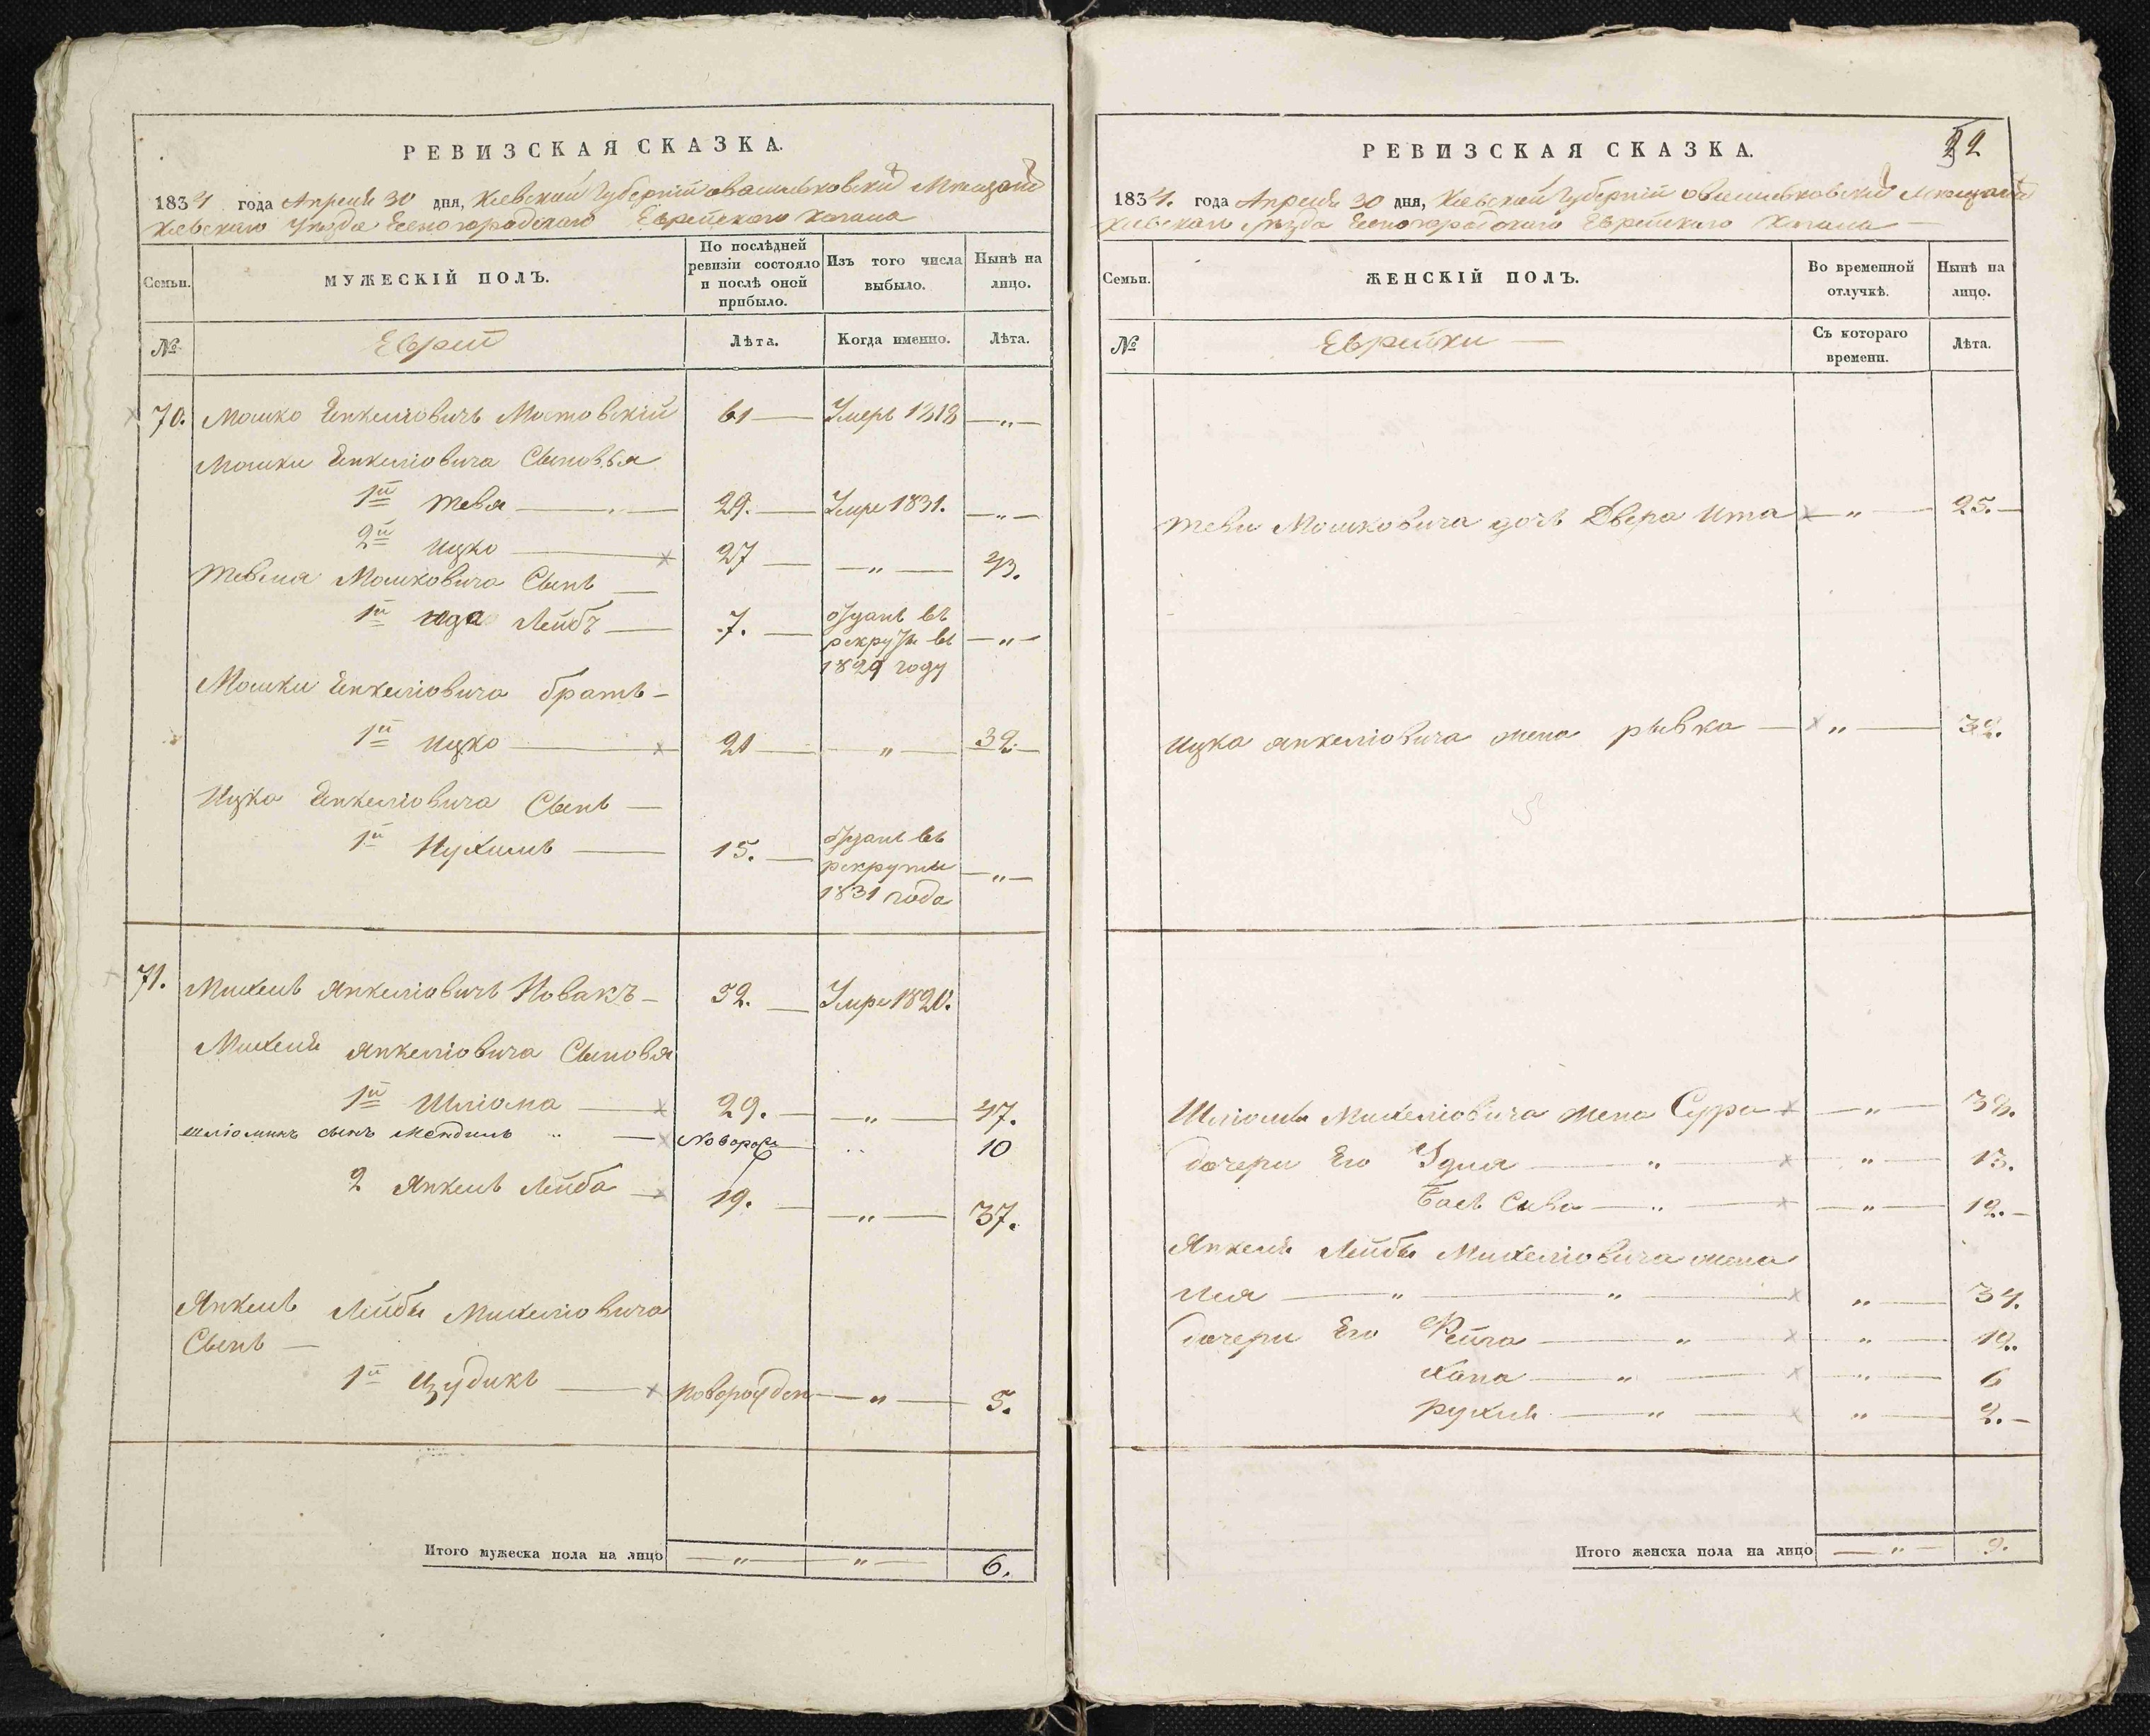 РЕВИЗСКАЯ СКАЗКА.
1834 года Апреля 30 дня, Кіевской Губерніи Мѣщанъ
Кіевскаго Уѣзда Еврейскаго Кагала
Семьи. МУЖЕСКІЙ ПОЛЪ. По послѣдней ревизіи состояло и послѣ оной прибыло. Изъ того числа выбыло. Нынѣ на лицо.
№ Еврей Лѣта. Когда именно. Лѣта.
70. Мошко Енкеліовичъ Мостовскій 61 — Умеръ 1818 — „ —
Мошки Енкеліовича Сыновья
1й Тевя — 29. — Умре 1831. — „ —
2й Ицко — 27 — „ — 43.
Тевеля Мошковича Сынъ —
1й Ида Лейбъ — 7. — Отданъ въ
рекруты въ — „ —
1829 году
Мошки Енкеліовича братъ —
1й Ицко — 21 — „ — 32 —
Ицка Енкеліовича Сынъ —
1й Нухимъ — 15. — Отданъ въ
рекруты — „ —
1831 года
71. Михель Янкеліовичъ Новакъ — 52. — Умре 1820.
Михеля Янкеліовича Сыновя
1й Шліома — 29. — „ — 47.
шліоминъ сынъ Мендиль „ — Новорож 10
2 Янкель Лейба — 19. — „ — 37.
Янкель Лейбы Михеліовича
Сынъ —
1й Цудикъ — новорожден — „ — 5.
Итого мужеска пола на лицо — „ — „ — 6.
РЕВИЗСКАЯ СКАЗКА. 22
1834. года Апреля 30 дня, Кіевской Губерніи Мѣщанъ
Кіевскаго Уѣзда Еврейскаго Кагала —
Семьи. ЖЕНСКІЙ ПОЛЪ. Во временной отлучкѣ. Нынѣ на лицо.
№ Еврейки — Съ котораго времени. Лѣта.
Теви Мошковича дочь Двера Ита — „ — 25. —
Ицка Янкеліовича жена рывка — „ — 32.
Шліомы Михеліовича жена Сура — „ — 38.
дочери Его Удля — „ — „ — 13.
Бася Сива — „ — „ — 12. —
Янкеля Лейбы Михеліовича жена
Лея — „ — „ — „ — 34.
дочери Его Рейча — „ — „ — 12.
Хана — „ — „ — 6
рухля — „ — „ — 2. —
Итого женска пола на лицо — „ — 9.